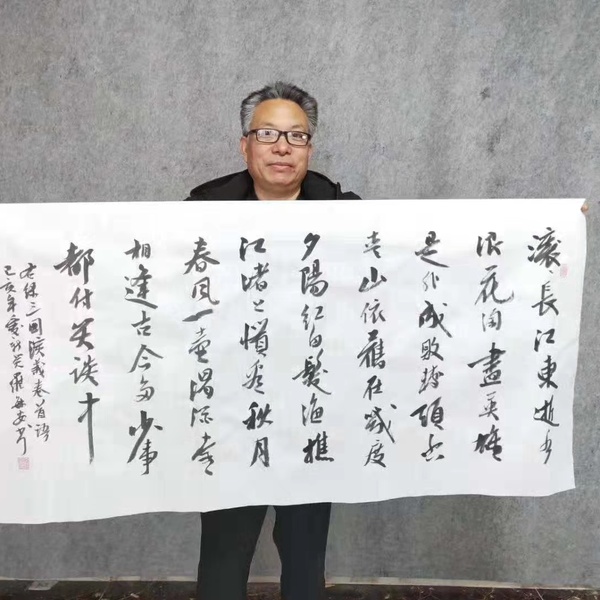 滚滚長江東逝水
浪花淘盡英雄
是非成敗转頭空
青山依舊在幾度
夕陽红白髮漁樵
江渚上慣看秋月
春风一壶濁酒喜
相逢古今多少事
都付笑谈中
右録三國演義卷首語
己亥年